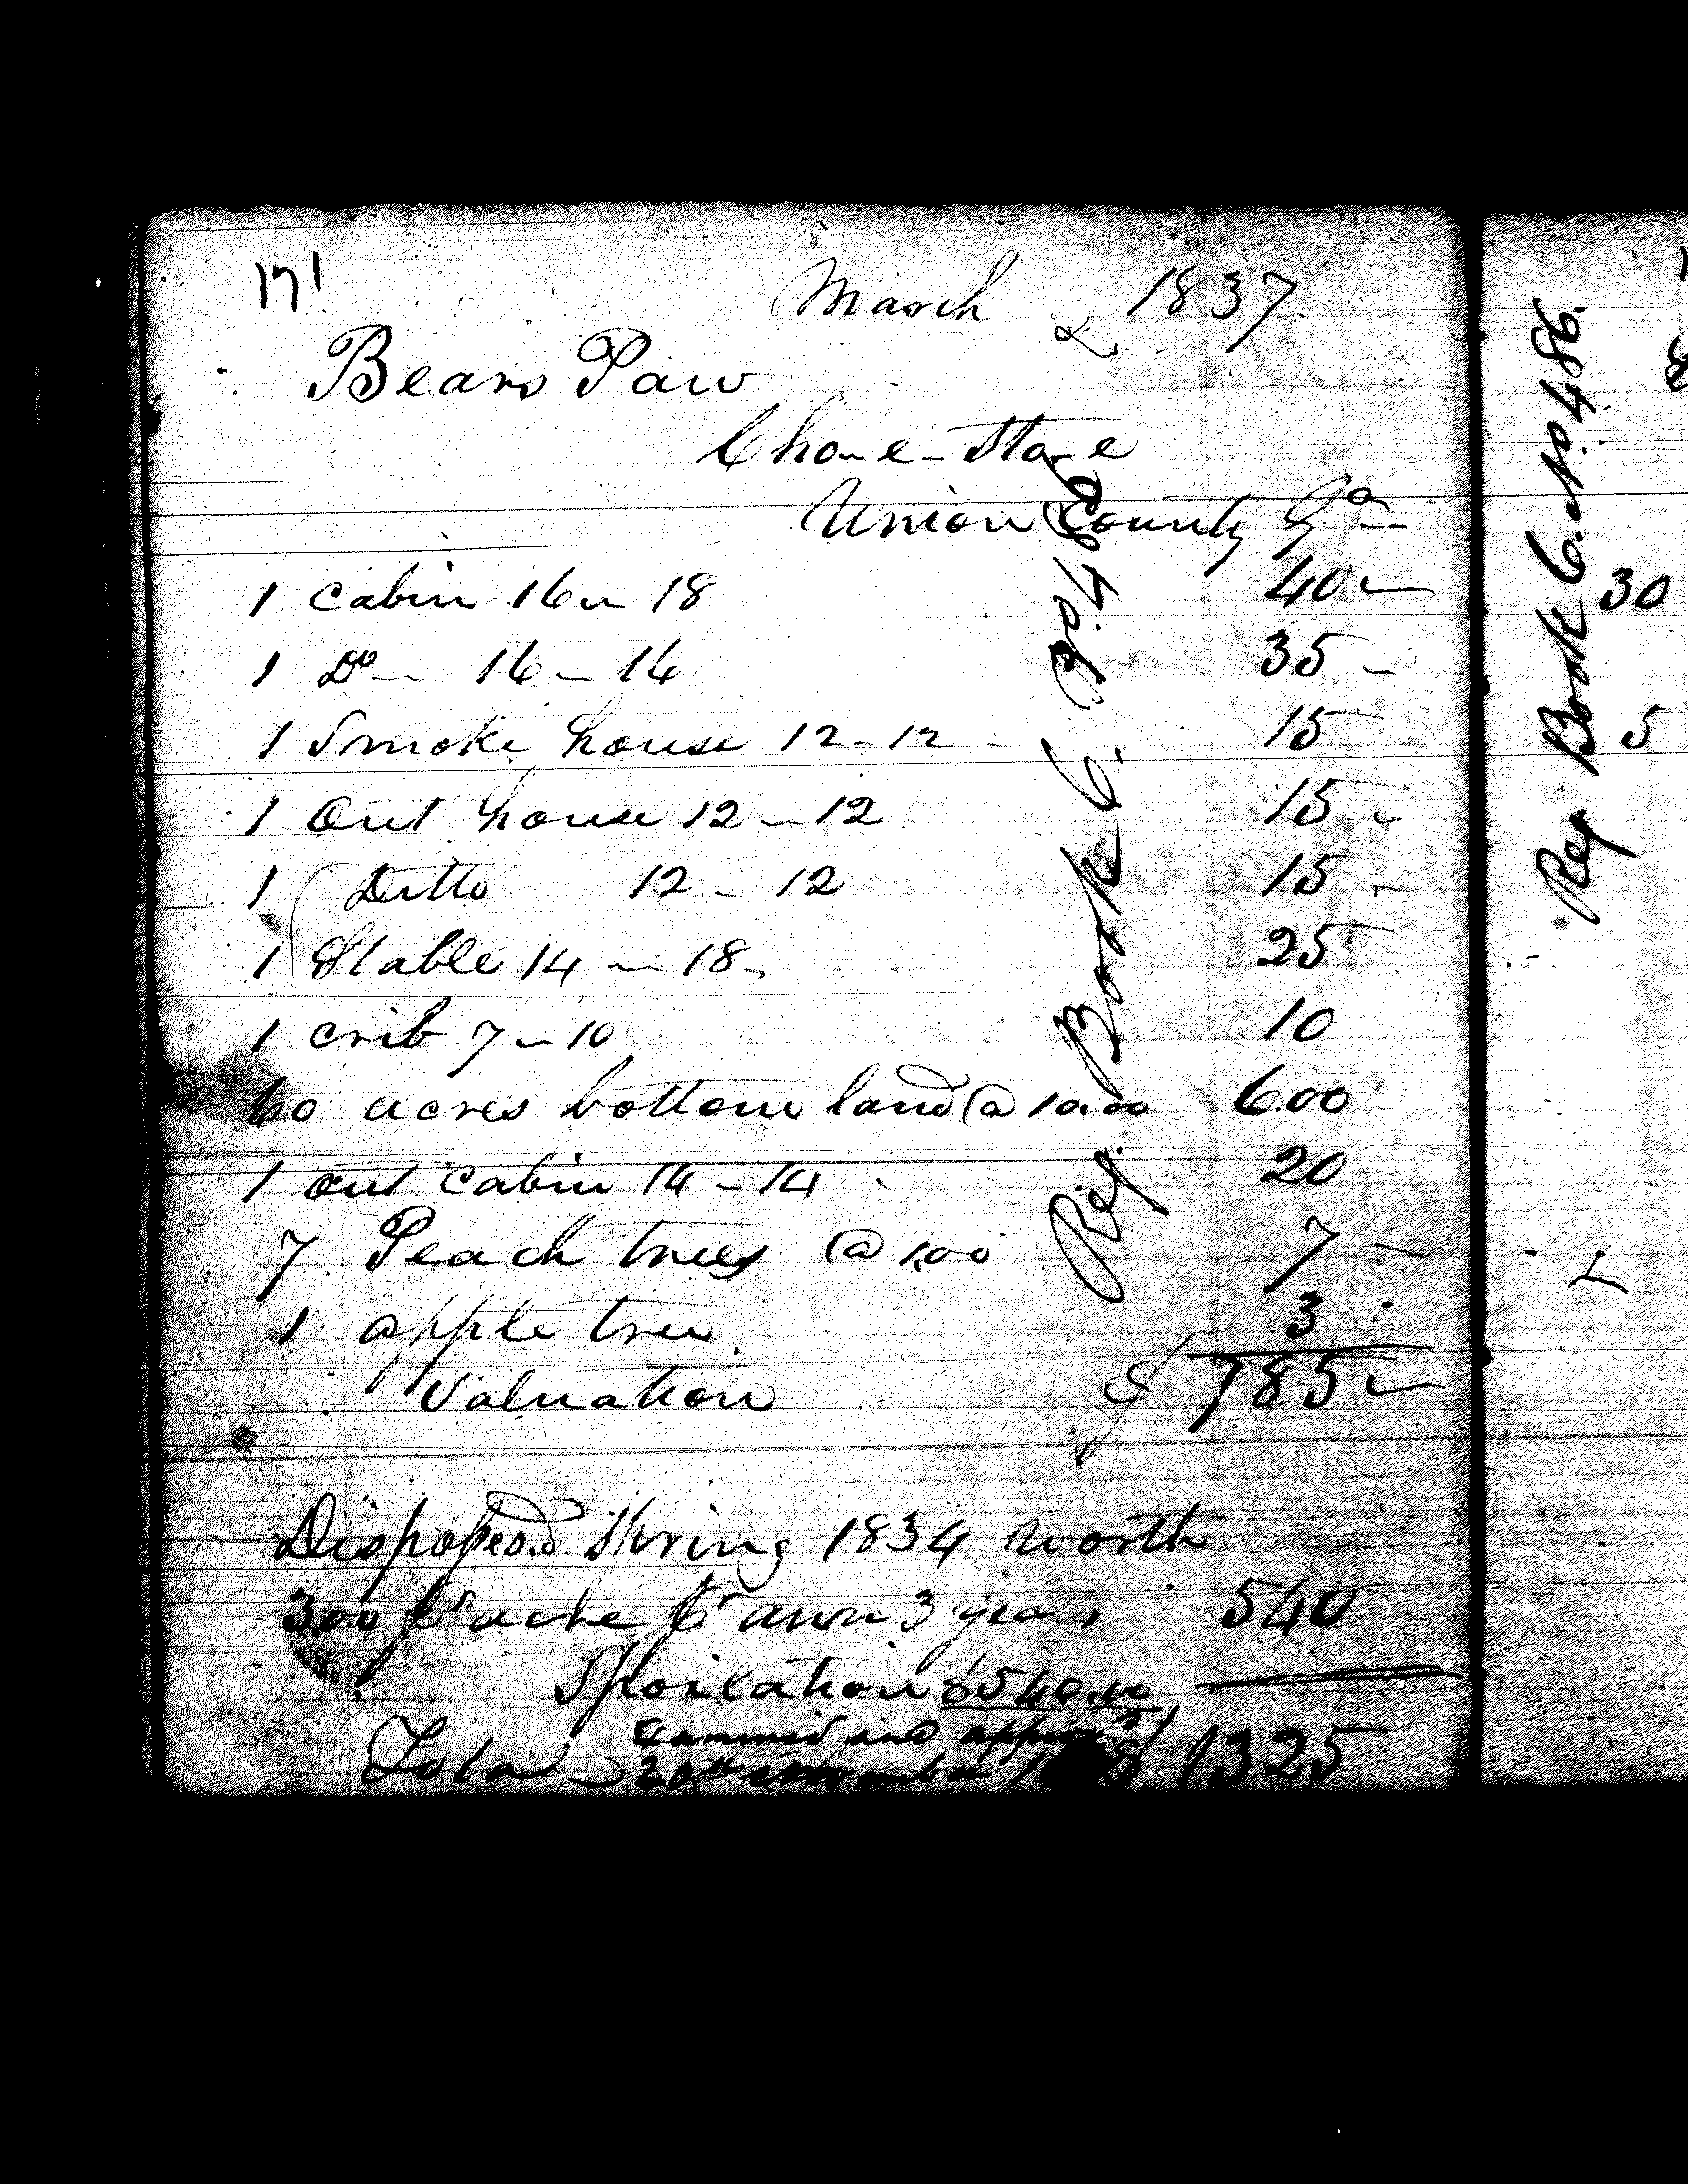 171
March 1837
Bears Paw
Chone-stare
Union County Ga
1 Cabin 16 – 18 40 –
1 Do – 16 – 16 35 –
1 Smoke house 12 – 12 15 –
1 Out house 12 – 12 15 –
1 Ditto 12 – 12 15 –
1 Stable 14 – 18 25
1 crib 7 – 10 10
60 acres bottom land @ 10.00 600
1 out cabin 14 – 14 20
7 Peach trees @ 1.00 7 –
1 apple tree 3
Valuation $ 785 –
Dispossed Spring 1834 worth
3.00 pr acre pr ann 3 years 540
Spoilation $540.00
Total $ 1325
20th November
Ref. Book C. No. 486
Ref Book C. No. 486.
30
5